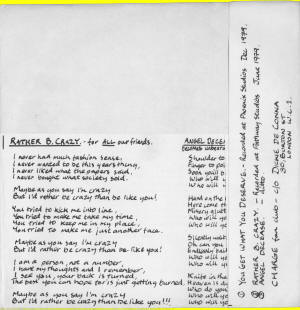 RATHER B. CRAZY. - for ALL our friends.
I never had much fashion sense,
I never wanted to be this years thing,
I never liked what the papers said,
I never bought what society said.
Maybe as you say I'm crazy
But I'd rather be crazy than be like you!
You tried to kick me into line,
You tried to make me your time,
You tried to keep me in my place,
You tried to make me just another face.
Maybe as you say I'm crazy
But I'd rather be crazy than be like you!
I am a person, not a number,
I have my thoughts and I remember,
I see you, your back is turned,
The best you can hope for is just getting burned.
Maybe as you say I'm crazy
But I'd rather be crazy than be like you!!!
ANGEL DECE
Shoulder to
Finger to
Soon you'll
Who will
Hand on the
Here come
Misery
Who will ye
Who will ye
Silently
Oh can you
Who will ye
Who will ye
Knife in the
Heaven is
Who do yo
Who will ye
Who will ye
① YOU GET WHAT YOU DESERVE. - Recorded at Phoenix Studios Dec 1979.
② RATHER B. CRAZY. - Recorded at Pathway Studios June 1979.
③ ANGEL DECEASED. - ditto
CHARGE fan club - c/o DIONE DE CONNA
LONDON W.C.1.